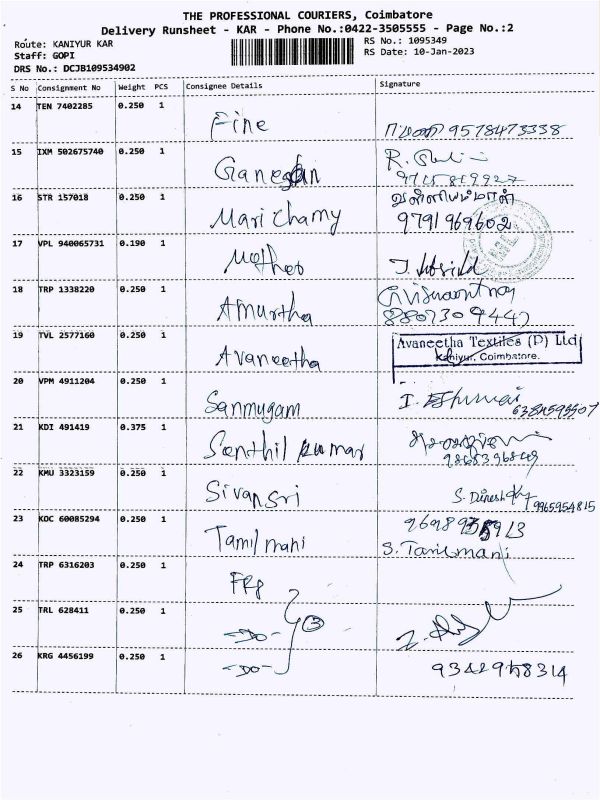 THE PROFESSIONAL COURIERS, Coimbatore
Delivery Runsheet - KAR - Phone No.:0422-3505555 - Page No.:2
Route: KANIYUR KAR
Staff: GOPI
DRS No.: DCJB109534902
RS No.: 1095349
RS Date: 10-Jan-2023
S No Consignment No Weight PCS Consignee Details Signature
14 TEN 7402285 0.250 1 Fine 9578473338
15 IXM 502675740 0.250 1 Ganeshan
16 STR 157018 0.250 1 Mari chamy வள்ளியம்மாள்
9791969602
17 VPL 940065731 0.190 1
18 TRP 1338220 0.250 1 Amurtha
19 TVL 2577160 0.250 1 Avaneetha Avaneetha Textiles (P) Ltd
Kaniyur, Coimbatore.
20 VPM 4911204 0.250 1 Sanmugam
21 KDI 491419 0.375 1 Senthil kumar
22 KMU 3323159 0.250 1 Sivansri S. Dinesh 9965954815
23 KOC 60085294 0.250 1 Tamil mani
S. Tamilmani
24 TRP 6316203 0.250 1 FRg
25 TRL 628411 0.250 1 -Do- 3
26 KRG 4456199 0.250 1 -Do-